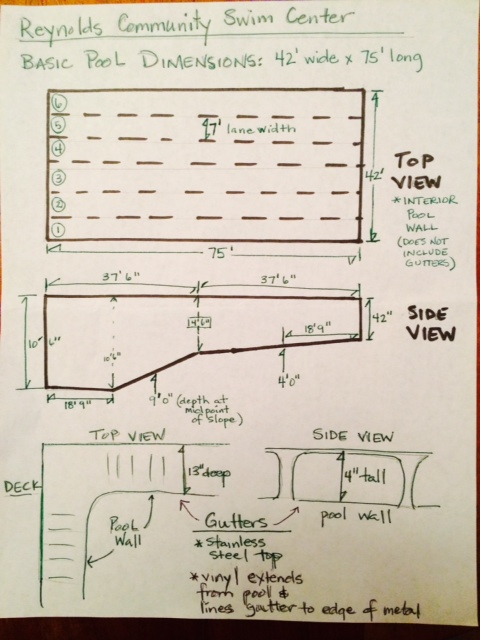 Reynolds Community Swim Center
BASIC POOL DIMENSIONS: 42' wide x 75' long
6
5
4
3
2
1
7' lane width
42'
75'
TOP
VIEW
* INTERIOR
POOL
WALL
(DOES NOT
INCLUDE
GUTTERS)
37' 6"
37' 6"
10' 6"
10' 6"
4' 6"
18' 9"
42"
SIDE
VIEW
18' 9"
9' 0" (depth at
midpoint
of slope)
4' 0"
TOP VIEW
DECK
13" deep
Pool
Wall
SIDE VIEW
4" tall
pool wall
Gutters
* stainless
steel top
* vinyl extends
from pool &
lines goutter to edge of metal